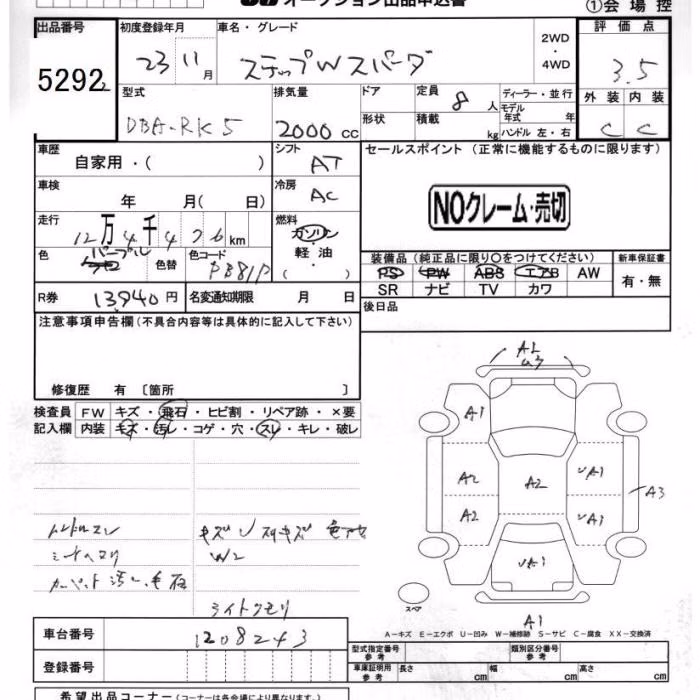 オークション出品申込書
①会場控
出品番号 初度登録年月 車名・グレード 2WD・4WD 評価点
5292 23 11月 ステップW スパーダ 3.5
型式 排気量 ドア 定員 8人 ディーラー・並行 外装 内装
DBA-RK5 2000cc 形状 積載 kg モデル年式 年 C C
ハンドル 左・右
車歴 シフト セールスポイント (正常に機能するものに限ります)
自家用・( ) AT
車検 冷房
年 月( 日) AC
NOクレーム・売切
走行 燃料
12万4千476km ガソリン
軽油
( )
色 パープル 色替 色コード PB81P
装備品(純正品に限り〇をつけてください) 新車保証書
PS PW ABS エアB AW 有・無
SR ナビ TV カワ
R券 13940円 名変通知期限 月 日
後日品
注意事項申告欄(不具合内容等は具体的に記入して下さい)
修復歴 有 〔箇所 〕
検査員 FW キズ・飛石・ヒビ割・リペア跡・×要
記入欄 内装 キズ・汚レ・コゲ・穴・スレ・キレ・破レ
A2
U3
A1
A2 A2 UA1
A3
A2 UA1
UA1
スペア
A1
ハンドルスレ
シートヘタリ
カーペット汚レ
W2
ライトクモリ
A-キズ E-エクボ U-凹み W-補修跡 S-サビ C-腐食 XX-交換済
車台番号 1208243
登録番号
型式指定番号 参考 類別区分番号 参考
車庫証明用 参考 長さ cm 幅 cm 高さ cm
希望出品コーナー(コーナーは各会場により異なります)